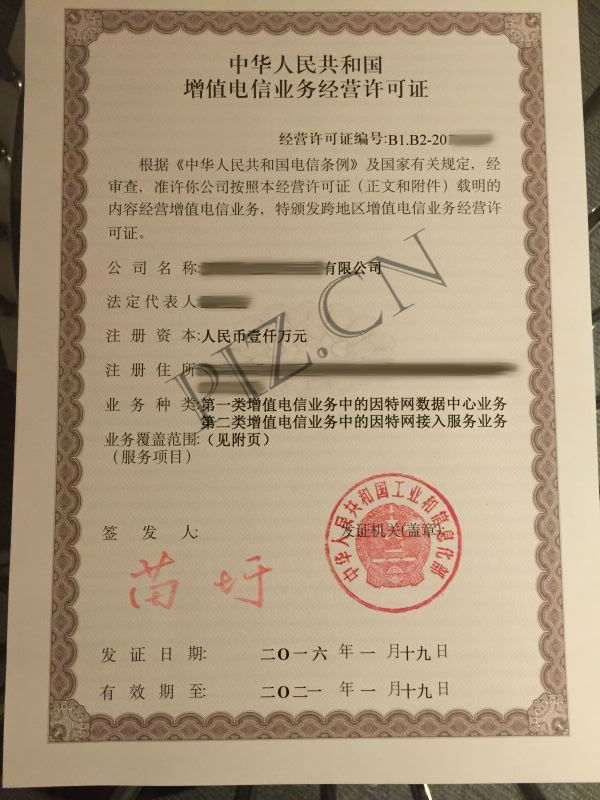 中华人民共和国
增值电信业务经营许可证
经营许可证编号:B1.B2-20
根据《中华人民共和国电信条例》及国家有关规定，经
审查，准许你公司按照本经营许可证（正文和附件）载明的
内容经营增值电信业务，特颁发跨地区增值电信业务经营许
可证。
公司名称: 有限公司
法定代表人:
注册资本:人民币壹仟万元
注册住所:
业务种类:第一类增值电信业务中的因特网数据中心业务
第二类增值电信业务中的因特网接入服务业务
业务覆盖范围:（见附页）
（服务项目）
PIZ.CN
签发人:
发证机关(盖章):
中华人民共和国工业和信息化部
苗圩
发证日期: 二O一六年一月十九日
有效期至: 二O二一年一月十九日